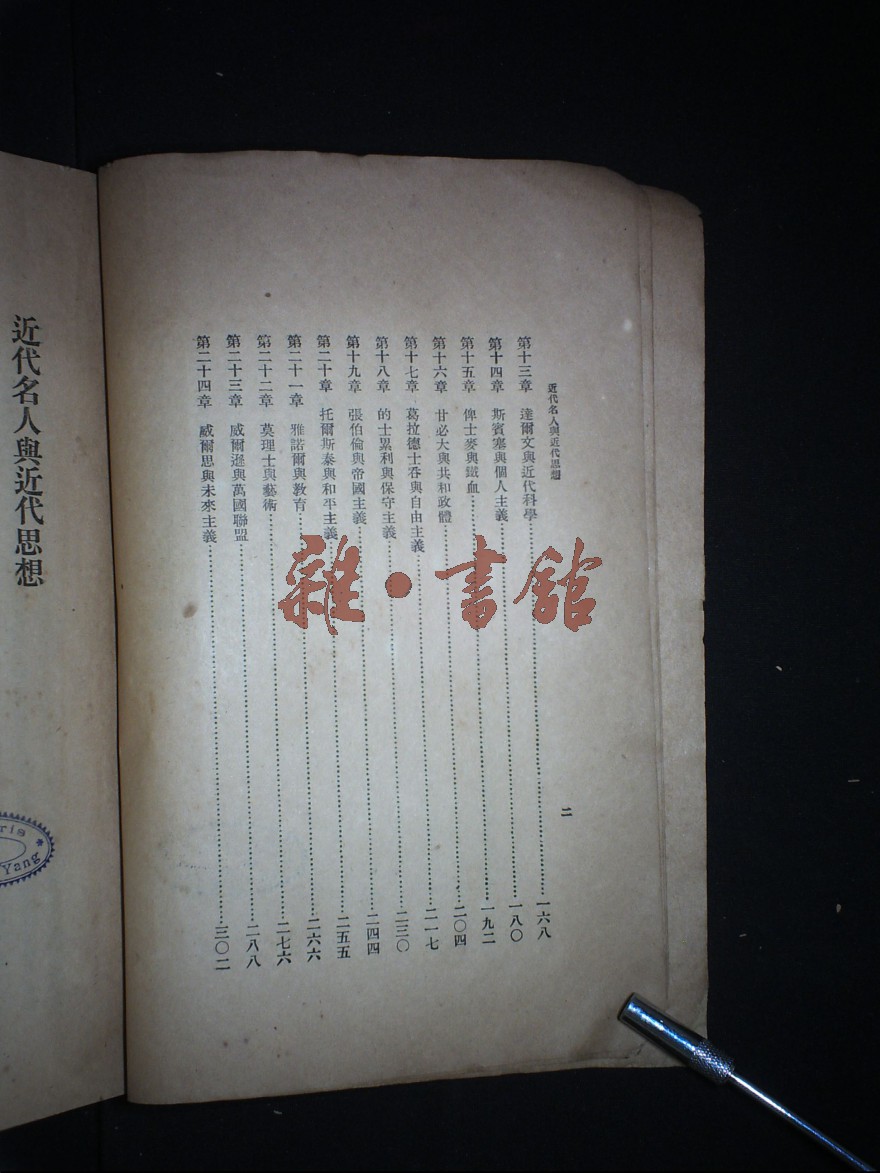 近代名人與近代思想
二
第十三章 達爾文與近代科學 一六八
第十四章 斯賓塞與個人主義 一八〇
第十五章 俾士麥與鐵血 一九二
第十六章 甘必大與共和政體 二〇四
第十七章 葛拉德士吞與自由主義 二一七
第十八章 的士累利與保守主義 二三〇
第十九章 張伯倫與帝國主義 二四四
第二十章 托爾斯泰與和平主義 二五五
第二十一章 雅諾爾與教育 二六六
第二十二章 莫理士與藝術 二七六
第二十三章 威爾遜與萬國聯盟 二八八
第二十四章 威爾思與未來主義 三〇二
近代名人與近代思想
雜·書館
ris
Yang *